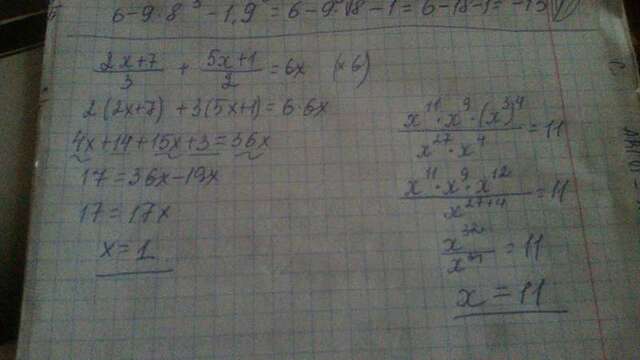 6-9·8 -1,9 = 6-9·√8-1=6-18-1=-13
(2x+7)/3 + (5x+1)/2 = 6x (×6)
2(2x+7) +3(5x+1)=6·6x
4x+14+15x+3=36x
17=36x-19x
17=17x
x=1
(x¹¹·x⁹·(x³)⁴)/(x²⁷·x⁴) = 11
(x¹¹·x⁹·x¹²)/(x²⁷⁺⁴) = 11
x³²/x³¹ = 11
x = 11